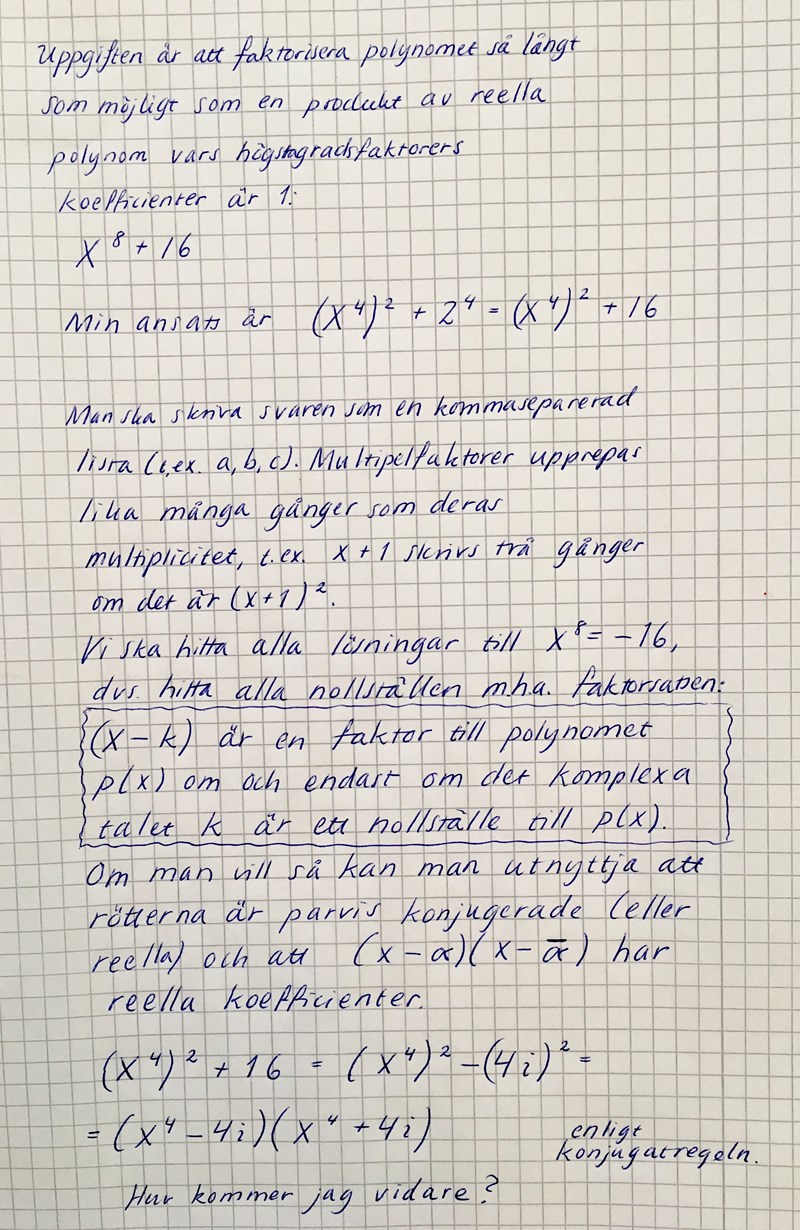 Uppgiften är att faktorisera polynomet så långt
som möjligt som en produkt av reella
polynom vars högstagradsfaktorers
koefficienter är 1:
x⁸ + 16
Min ansats är (x⁴)² + 2⁴ = (x⁴)² + 16
Man ska skriva svaren som en kommaseparerad
lista (t.ex. a, b, c). Multipelfaktorer upprepas
lika många gånger som deras
multiplicitet, t.ex. x + 1 skrivs två gånger
om det är (x+1)².
Vi ska hitta alla lösningar till x⁸ = -16,
dvs. hitta alla nollställen mha. faktorsatsen:
(x - k) är en faktor till polynomet
p(x) om och endast om det komplexa
talet k är ett nollställe till p(x).
Om man vill så kan man utnyttja att
rötterna är parvis konjugerade (eller
reella) och att (x - α)(x - ᾱ) har
reella koefficienter.
(x⁴)² + 16 = (x⁴)² - (4i)² =
= (x⁴ - 4i)(x⁴ + 4i) enligt
konjugatregeln.
Hur kommer jag vidare?